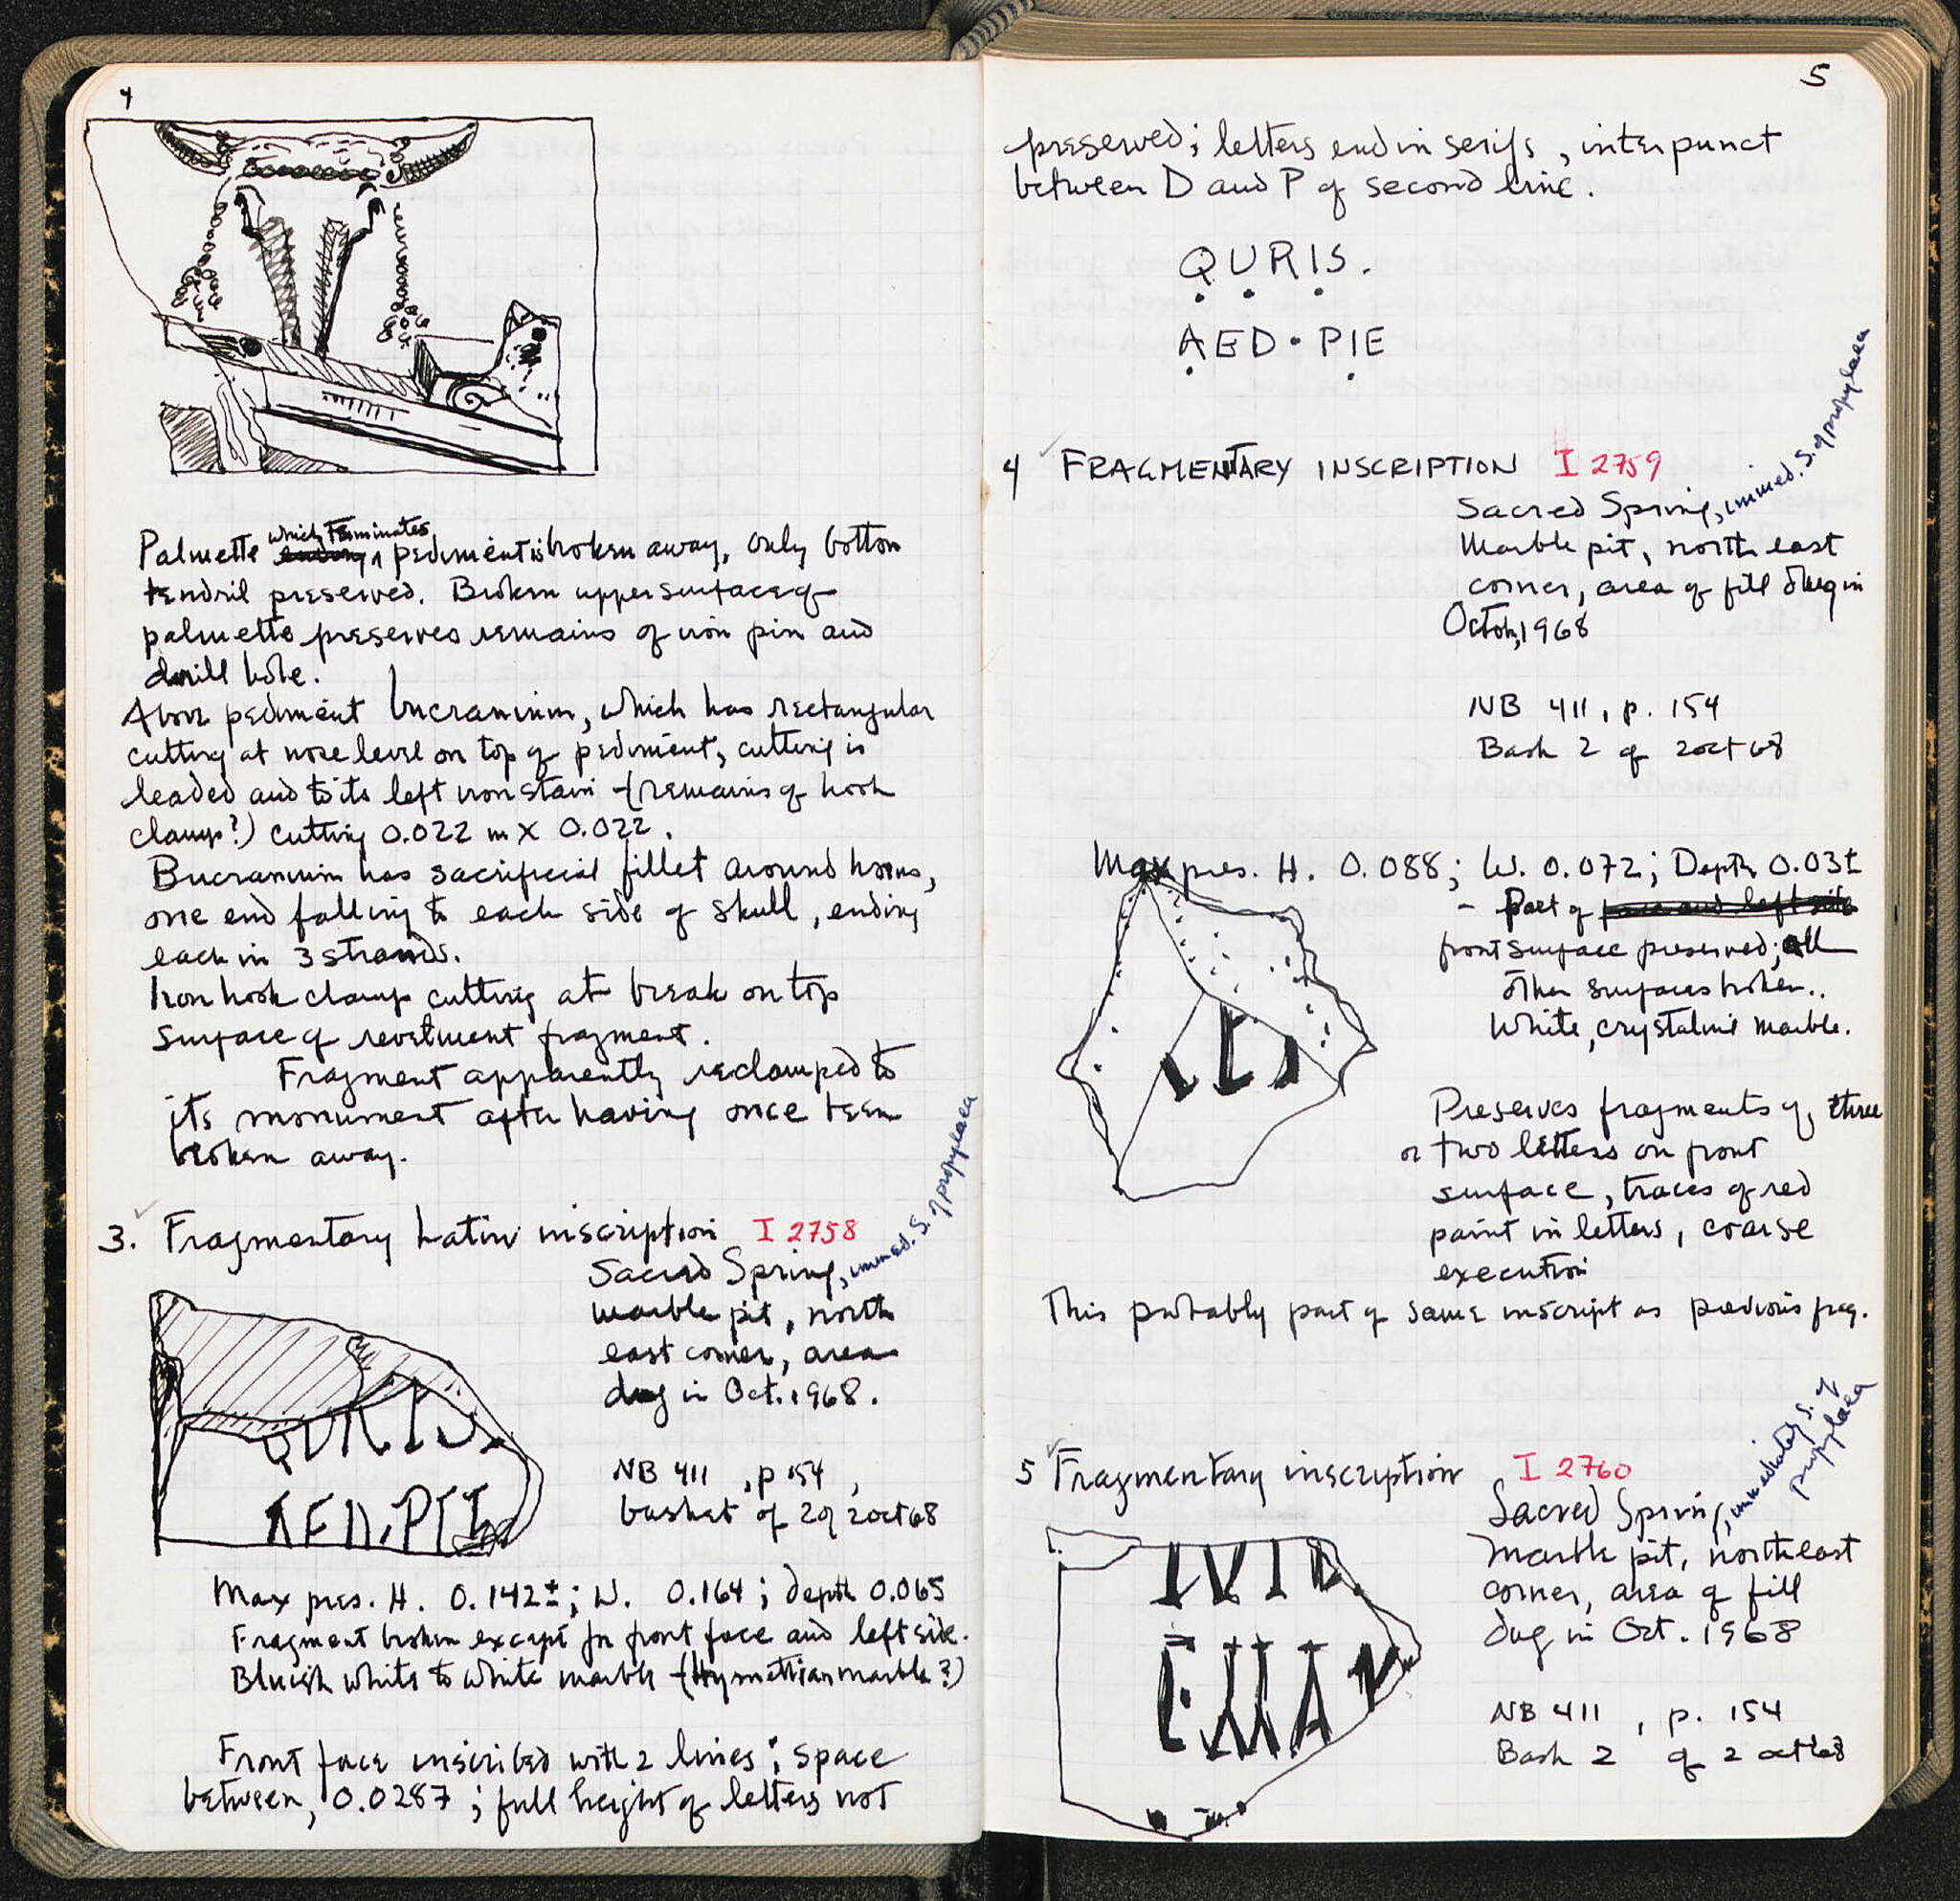 4
Palmette which terminates pediment is broken away, only bottom
tendril preserved. Broken upper surface of
palmette preserves remains of iron pin and
drill hole.
Above pediment bucranium, which has rectangular
cutting at nose level on top of pediment, cutting is
leaded and to its left iron stain (remains of hook
clamp?) cutting 0.022 m X 0.022.
Bucranium has sacrificial fillet around horns,
one end falling to each side of skull, ending
each in 3 strands.
Iron hook clamp cutting at break on top
surface of revetment fragment.
Fragment apparently reclamped to
its monument after having once been
broken away.
3. Fragmentary Latin inscription I 2758
Sacred Spring, immed. S. of propylaea
marble pit, north
east corner, area
dug in Oct. 1968.
NB 411, p 154,
basket of 2 of 2 oct 68
QURIS
AED.PIE
Max pres. H. 0.142±; W. 0.164; depth 0.065
Fragment broken except for front face and left side.
Bluish white to white marble (Hymettian marble?)
Front face inscribed with 2 lines; space
between, 0.0287; full height of letters not
5
preserved; letters end in serifs, interpunct
between D and P of second line.
QURIS.
AED·PIE
4 FRAGMENTARY INSCRIPTION I 2759
Sacred Spring, immed. S. of propylaea
Marble pit, north east
corner, area of fill dug in
Octob, 1968
NB 411, p. 154
Bask 2 of 2 oct 68
Max pres. H. 0.088; W. 0.072; Depth 0.03±
- Part of face and left side
front surface preserved; all
other surfaces broken..
White, crystaline marble.
Preserves fragments of three
or two letters on front
surface, traces of red
paint in letters, coarse
execution
This probably part of same inscript as previous frag.
5 Fragmentary inscription I 2760
Sacred Spring, immediately S. of
propylaea
Marble pit, northeast
corner, area of fill
dug in Oct. 1968
NB 411, p. 154
Bask 2 of 2 oct 68